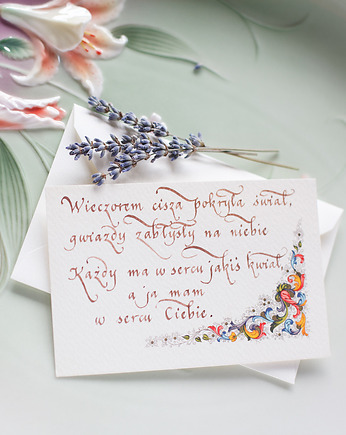 Wieczorem cisza pokryła świat,
gwiazdy zabłysły na niebie
Każdy ma w sercu jakiś kwiat,
a ja mam
w sercu Ciebie.